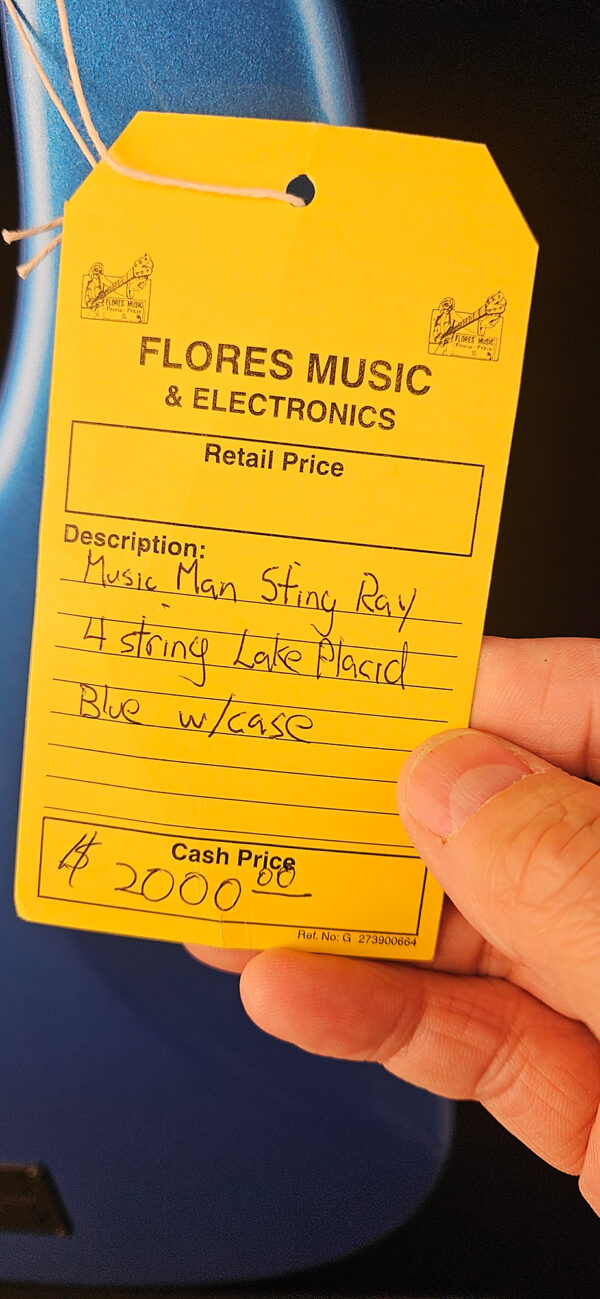 FLORES MUSIC
Peoria - Pekin
IL
FLORES MUSIC
Peoria - Pekin
IL
FLORES MUSIC
& ELECTRONICS
Retail Price
Description:
Music Man Sting Ray
4 string Lake Placid
Blue w/case
Cash Price
$ 2000 00
Ref. No: G 273900664